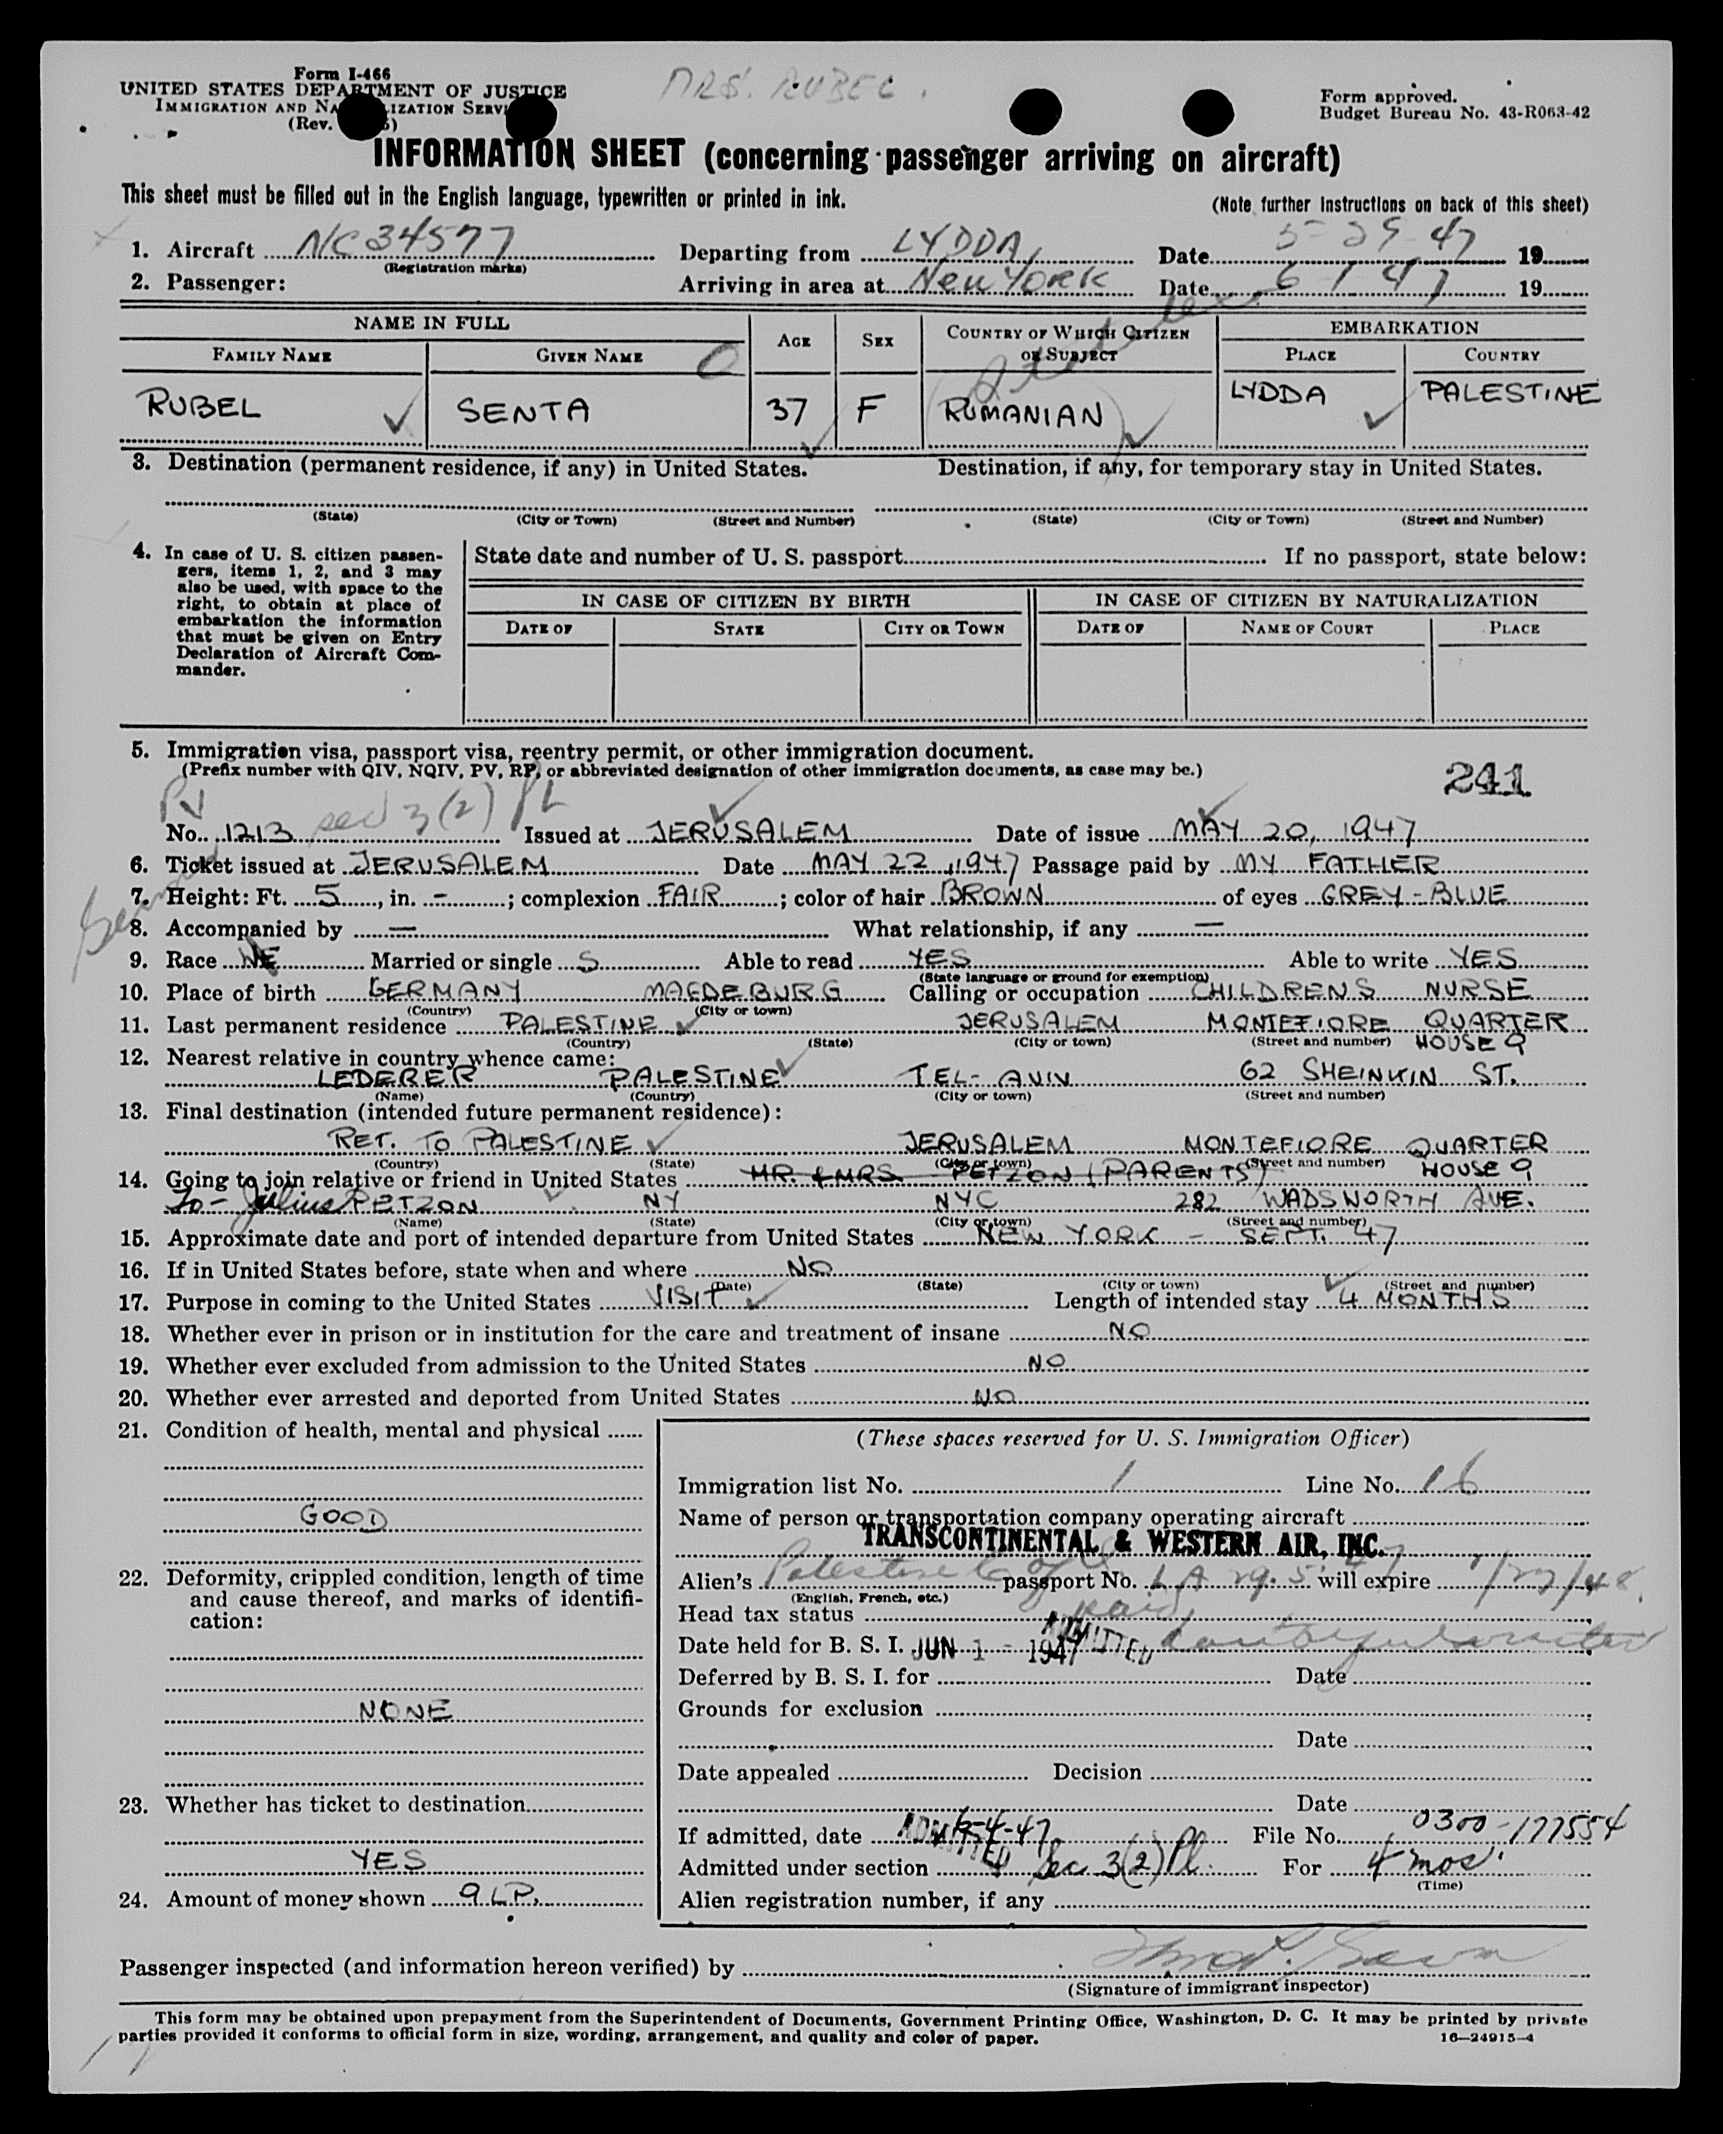 Form I-466
UNITED STATES DEPARTMENT OF JUSTICE
MRS. RUBEL
IMMIGRATION AND NA LIZATION SERVI
(Rev.
Form approved.
Budget Bureau No. 43-R063-42
INFORMATION SHEET (concerning passenger arriving on aircraft)
This sheet must be filled out in the English language, typewritten or printed in ink.
(Note further instructions on back of this sheet)
1. Aircraft NC 34577 Departing from LYDDA, Date 5-29-47 19
(Registration marks)
2. Passenger: Arriving in area at New York Date 6 1 47 19
NAME IN FULL AGE SEX COUNTRY OF WHICH CITIZEN OR SUBJECT EMBARKATION
FAMILY NAME GIVEN NAME PLACE COUNTRY
RUBEL SENTA 37 F RUMANIAN LYDDA PALESTINE
3. Destination (permanent residence, if any) in United States. Destination, if any, for temporary stay in United States.
(State) (City or Town) (Street and Number) (State) (City or Town) (Street and Number)
4. In case of U. S. citizen passen-
gers, items 1, 2, and 3 may
also be used, with space to the
right, to obtain at place of
embarkation the information
that must be given on Entry
Declaration of Aircraft Com-
mander.
State date and number of U. S. passport If no passport, state below:
IN CASE OF CITIZEN BY BIRTH IN CASE OF CITIZEN BY NATURALIZATION
DATE OF STATE CITY OR TOWN DATE OF NAME OF COURT PLACE
5. Immigration visa, passport visa, reentry permit, or other immigration document.
(Prefix number with QIV, NQIV, PV, RP, or abbreviated designation of other immigration documents, as case may be.)
241
PV sec 3(2) PL
No. 1213 Issued at JERUSALEM Date of issue MAY 20, 1947
6. Ticket issued at JERUSALEM Date MAY 22 1947 Passage paid by MY FATHER
7. Height: Ft. 5, in. -; complexion FAIR; color of hair BROWN of eyes GREY-BLUE
8. Accompanied by — What relationship, if any —
9. Race Married or single S Able to read YES Able to write YES
(State language or ground for exemption)
10. Place of birth GERMANY MAGDEBURG Calling or occupation CHILDRENS NURSE
(Country) (City or town)
11. Last permanent residence PALESTINE JERUSALEM MONTEFIORE QUARTER
(Country) (State) (City or town) (Street and number) HOUSE 9
12. Nearest relative in country whence came:
LEDERER PALESTINE TEL-AVIV 62 SHEINKIN ST.
(Name) (Country) (City or town) (Street and number)
13. Final destination (intended future permanent residence):
RET. TO PALESTINE JERUSALEM MONTEFIORE QUARTER
(Country) (State) (City or town) (Street and number) HOUSE 9
14. Going to join relative or friend in United States MR. & MRS. PETZON (PARENTS)
To - Julius PETZON NY NYC 282 WADSWORTH AVE.
(Name) (State) (City or town) (Street and number)
15. Approximate date and port of intended departure from United States NEW YORK - SEPT. 47
16. If in United States before, state when and where NO
(Date) (State) (City or town) (Street and number)
17. Purpose in coming to the United States VISIT Length of intended stay 4 MONTHS
18. Whether ever in prison or in institution for the care and treatment of insane NO
19. Whether ever excluded from admission to the United States NO
20. Whether ever arrested and deported from United States NO
21. Condition of health, mental and physical
GOOD
22. Deformity, crippled condition, length of time
and cause thereof, and marks of identifi-
cation:
NONE
23. Whether has ticket to destination
YES
24. Amount of money shown 9 L.P.
(These spaces reserved for U. S. Immigration Officer)
Immigration list No. 1 Line No. 16
Name of person or transportation company operating aircraft
TRANSCONTINENTAL & WESTERN AIR, INC.
Alien's Palestine passport No. will expire 1/27/48.
(English, French, etc.)
Head tax status paid
Date held for B. S. I. JUN 1 - 1947 ADMITTED
Deferred by B. S. I. for Date
Grounds for exclusion
Date
Date appealed Decision
Date
If admitted, date ADMITTED 6-4-47 File No. 0300-177554
Admitted under section Sec 3(2) Pl. For 4 mos.
(Time)
Alien registration number, if any
Passenger inspected (and information hereon verified) by
(Signature of immigrant inspector)
This form may be obtained upon prepayment from the Superintendent of Documents, Government Printing Office, Washington, D. C. It may be printed by private
parties provided it conforms to official form in size, wording, arrangement, and quality and color of paper. 16—24915-4